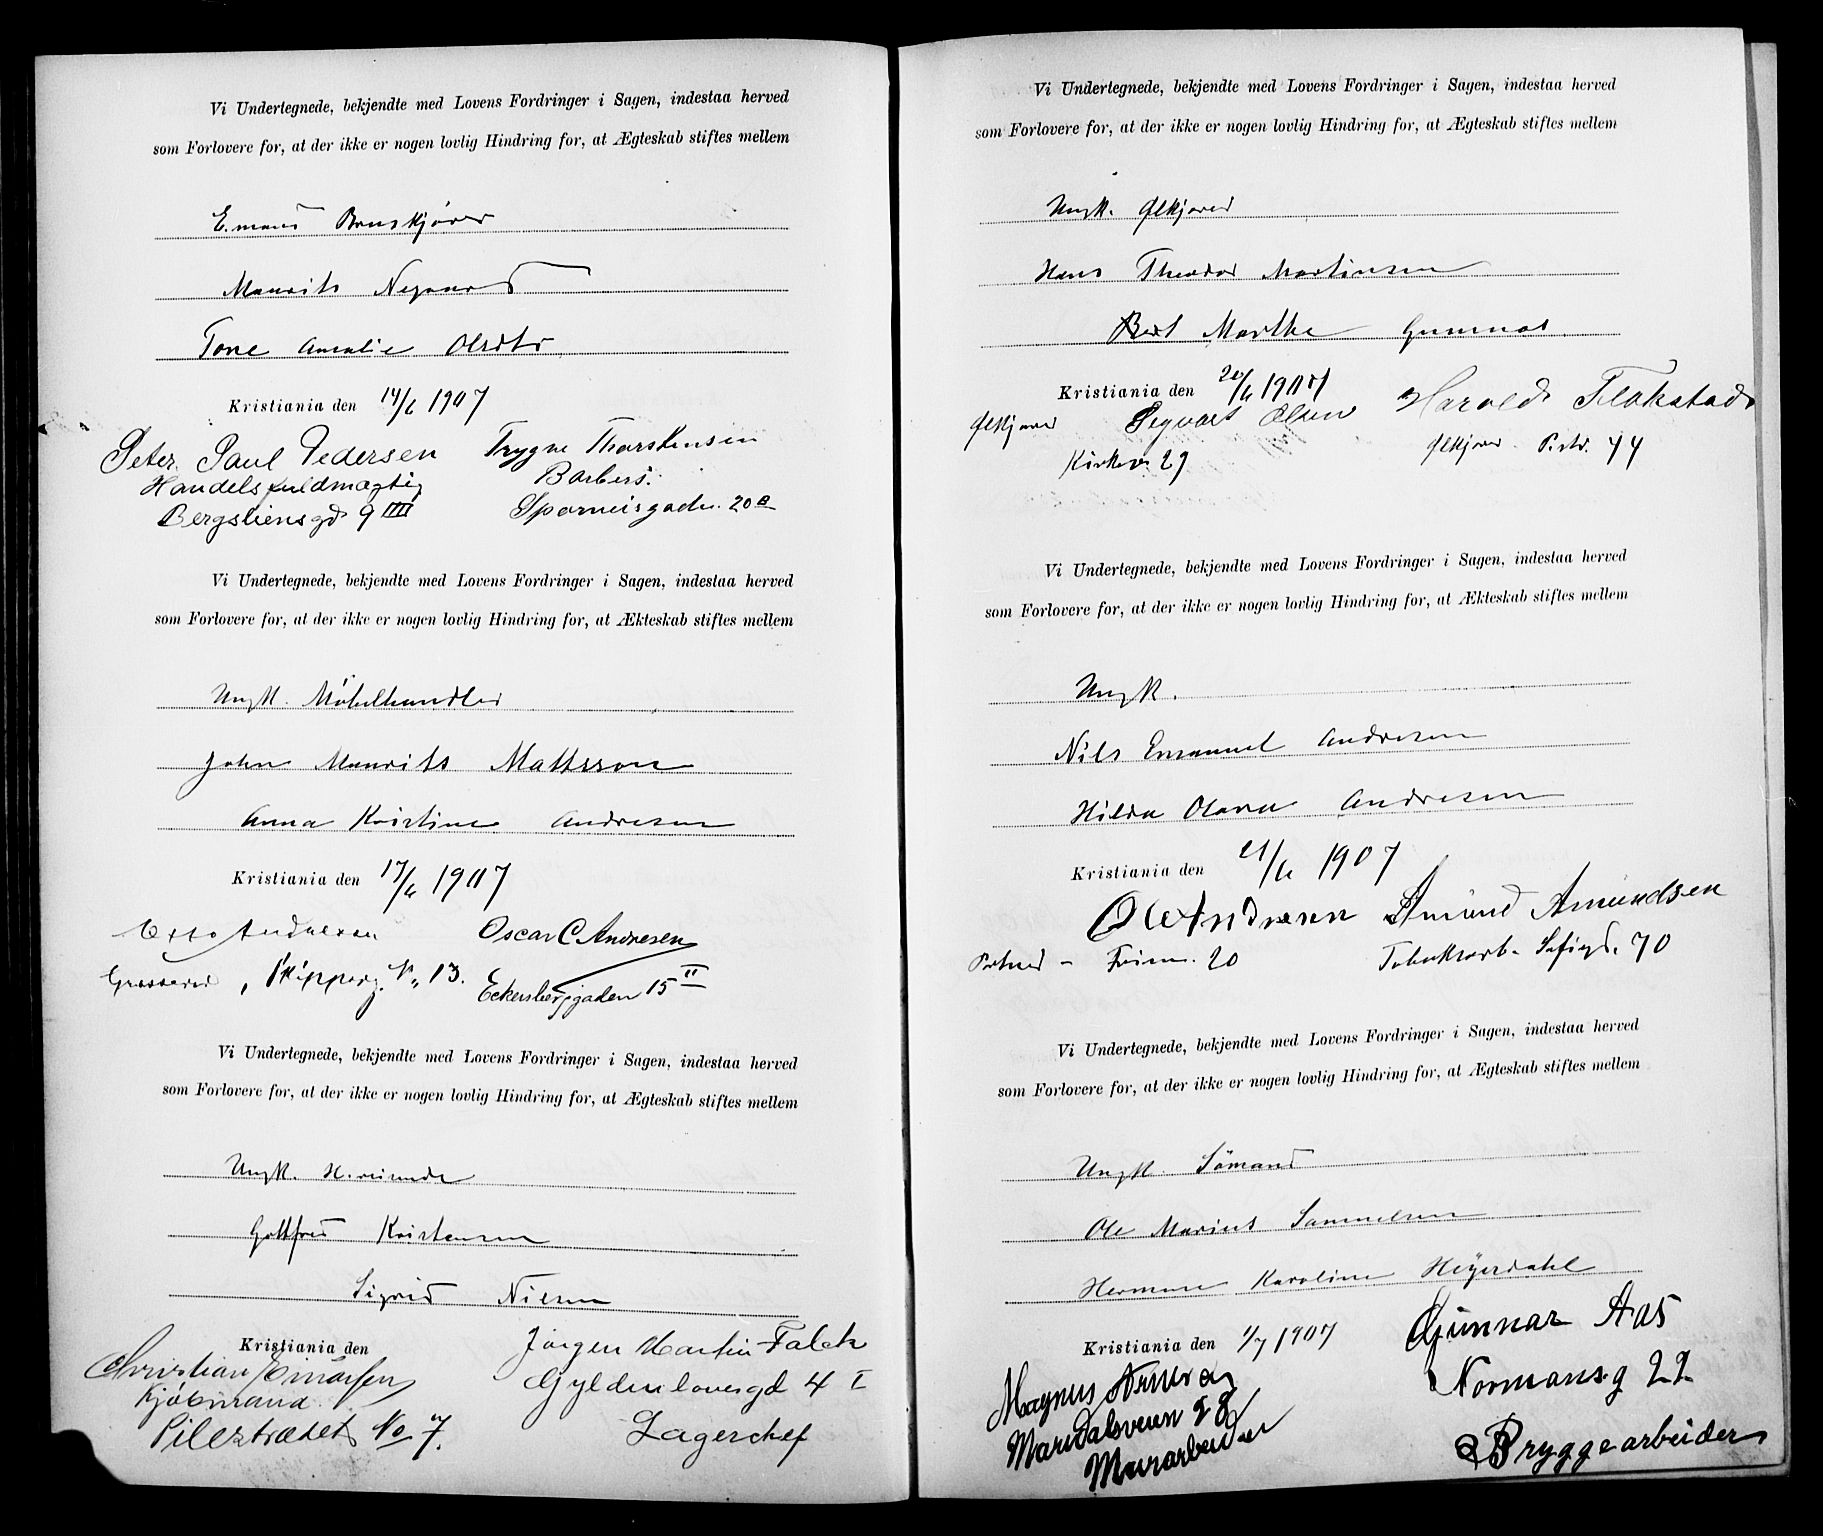 Vi Undertegnede, bekjendte med Lovens Fordringer i Sagen, indestaa herved
som Forlovere for, at der ikke er nogen lovlig Hindring for, at Ægteskab stiftes mellem
Maurits
Tone Amalie Olsdtr
Kristiania den 14/6 1907
Peter Paul Pedersen
Handelsfuldmægtig
Bergsliensgd 9 IIII
Trygve Thorstensen
Barber.
Sporveisgaden 20 B
Vi Undertegnede, bekjendte med Lovens Fordringer i Sagen, indestaa herved
som Forlovere for, at der ikke er nogen lovlig Hindring for, at Ækteskab stiftes mellem
Ungk. Möbelhandler
John Maurits Mattsson
Anna Kristine Andresen
Kristiania den 17/6 1907
Otto Andresen
Grosserer, Skipperg. N. 13.
Oscar C Andresen
Eckersbergsgaden 15 II
Vi Undertegnede, bekjendte med Lovens Fordringer i Sagen, indestaa herved
som Forlovere for, at der ikke er nogen lovlig Hindring for, at Ægteskab stiftes mellem
Ungk.
Gottfred Kristensen
Sigrid Nilsen
Kristiania den
Christian Einarsen
Kjöbmand
Pilestrædet No 7.
Jörgen Martin Falck
Gyldenlovesgd 4 I
Lagerchef
Vi Undertegnede, bekjendte med Lovens Fordringer i Sagen, indestaa herved
som Forlovere for, at der ikke er nogen lovlig Hindring for, at Ægteskab stiftes mellem
Ungk.
Hans Theodor Martinsen
Berit Marthe
Kristiania den 20/6 1907
Sigvart Olsen
Kirkev. 29
Harald Flakstad
44
Vi Undertegnede, bekjendte med Lovens Fordringer i Sagen, indestaa herved
som Forlovere for, at der ikke er nogen lovlig Hindring for, at Ækteskab stiftes mellem
Ungk.
Nils Emanuel Andresen
Hilda Olava Andresen
Kristiania den 21/6 1907
O Andresen
20
Amund Amundsen
Tobaksarb. Sofiegd. 70
Vi Undertegnede, bekjendte med Lovens Fordringer i Sagen, indestaa herved
som Forlovere for, at der ikke er nogen lovlig Hindring for, at Ægteskab stiftes mellem
Ungk. Sömand
Ole Marius Samuelsen
Karoline Heyerdahl
Kristiania den 1/7 1907
Magnus
Maridalsveien
Murarbeider
Gunnar Aas
Normansg 22
Bryggearbeider